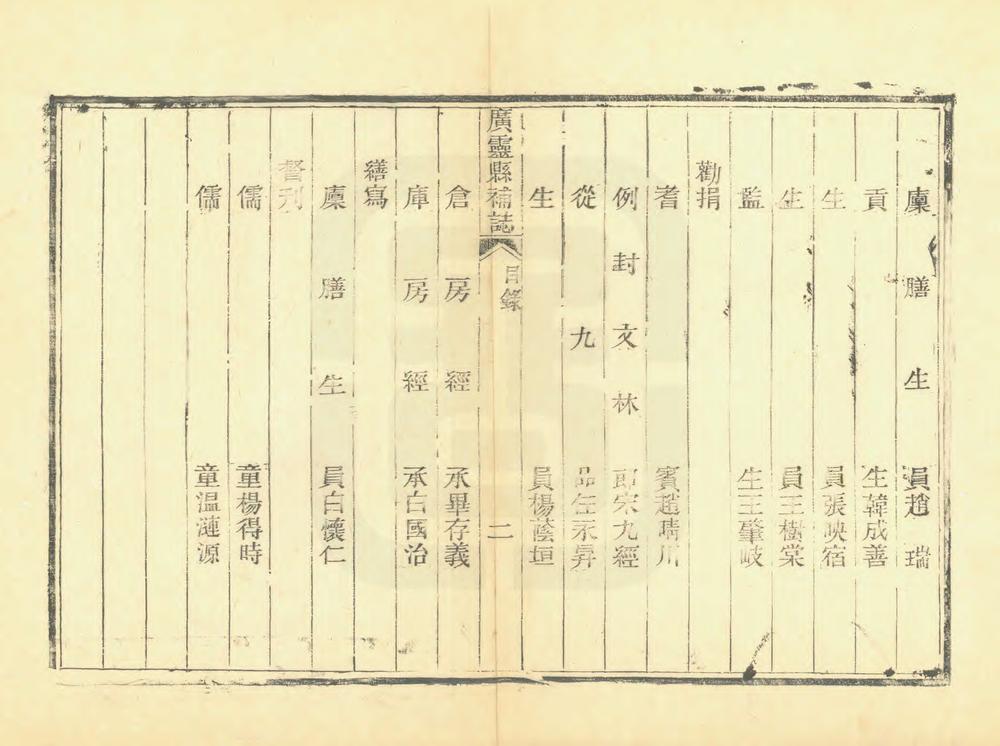 廩膳生員趙瑞
貢生韓成善
生員張映宿
生員王樹棠
監生王肇岐
勸捐
耆賓趙晴川
例封文林郎宋九經
從九品任永昇
生員楊蔭垣
廣靈縣補誌
目錄
二
倉房經承畢存義
庫房經承白國治
繕寫
廩膳生員白懷仁
督刋
儒童楊得時
儒童溫漣源